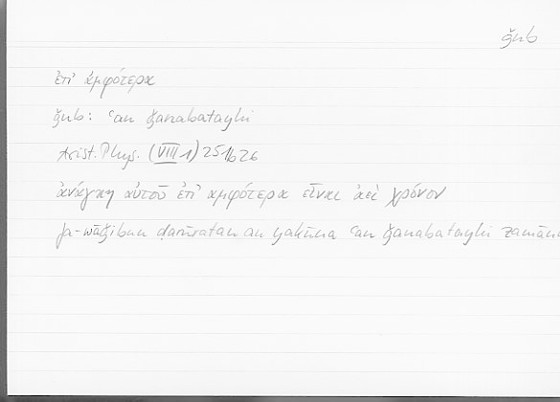 ǧnb
ἐπ' ἀμφότερα
ǧnb: ʿan ǧanabatayhi
Arist. Phys. (VIII 1) 251b26
ἀνάγκη αὐτοῦ ἐπ' ἀμφότερα εἶναι ἀεὶ χρόνον
fa-wāǧibun ḍarūratan an yakūna ʿan ǧanabatayhi